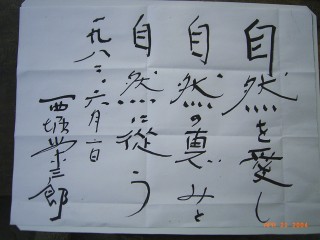 自然を愛し
自然の恵みと
自然に従う
一九八二・六月一日
西堀栄三郎